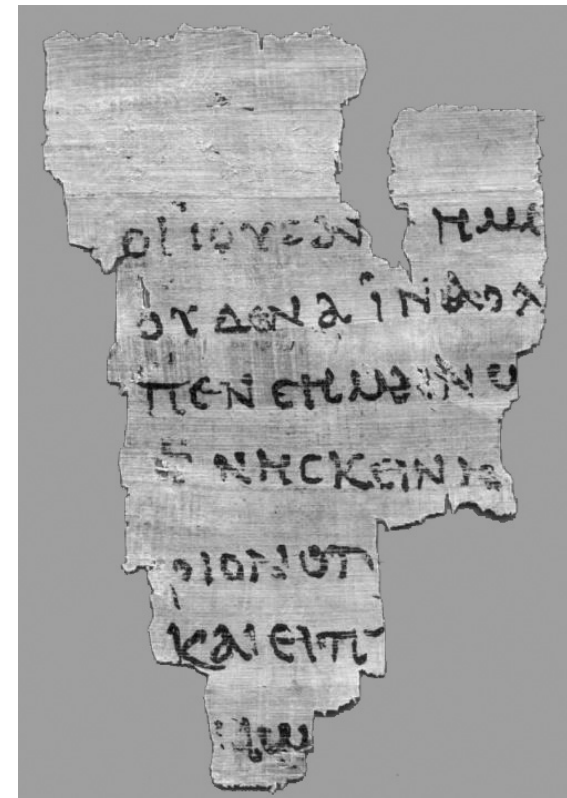 ΟΙ ΙΟΥΔΑΙ ΗΜΙ
ΟΥΔΕΝΑ ΙΝΑ Ο Λ
ΠΕΝ ΣΗΜΑΙΝΩ
ΘΝΗΣΚΕΙΝ ΙΣ
ΡΙΟΝ Ο Π
ΚΑΙ ΕΙΠ
ΑΙΩ